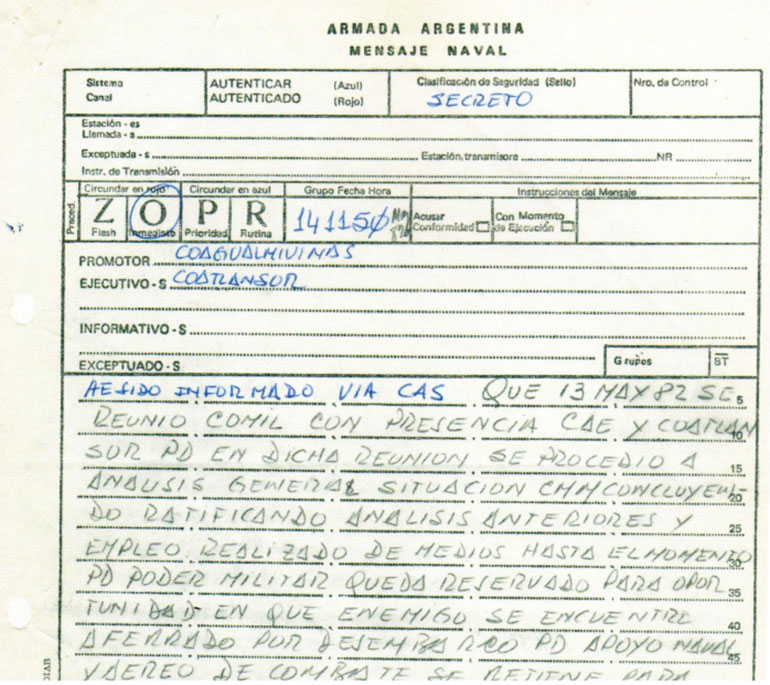 ARMADA ARGENTINA
MENSAJE NAVAL
Sistema
Canal
AUTENTICAR (Azul)
AUTENTICADO (Rojo)
Clasificación de Seguridad (Sello)
SECRETO
Nro. de Control
Estación - es
Llamada - s
Exceptuada - s Estación, transmisora NR
Instr. de Transmisión
Circundar en rojo Circundar en azul Grupo Fecha Hora Instrucciones del Mensaje
Preced.
Z O P R
Flash Inmediato Prioridad Rutina
141150 May
Acusar
Conformidad
Con Momento
de Ejecución
PROMOTOR COAGUALMIVINAS
EJECUTIVO - S COATLANSUR
INFORMATIVO - S
EXCEPTUADO - S
Grupos BT
HE SIDO INFORMADO VIA CAS QUE 13 MAY 82 SE 5
REUNIO COMIL CON PRESENCIA CAE Y COATLAN 10
SUR PD EN DICHA REUNION SE PROCEDIO A 15
ANALISIS GENERAL SITUACION CMM CONCLUYEN- 20
DO RATIFICANDO ANALISIS ANTERIORES Y 25
EMPLEO REALIZADO DE MEDIOS HASTA EL MOMENTO 30
PD PODER MILITAR QUEDA RESERVADO PARA OPOR 35
TUNIDAD EN QUE ENEMIGO SE ENCUENTRE 40
AFERRADO POR DESEMBARCO PD APOYO NAVAL 45
Y AEREO DE COMBATE SE RETIENE PARA
DIAB